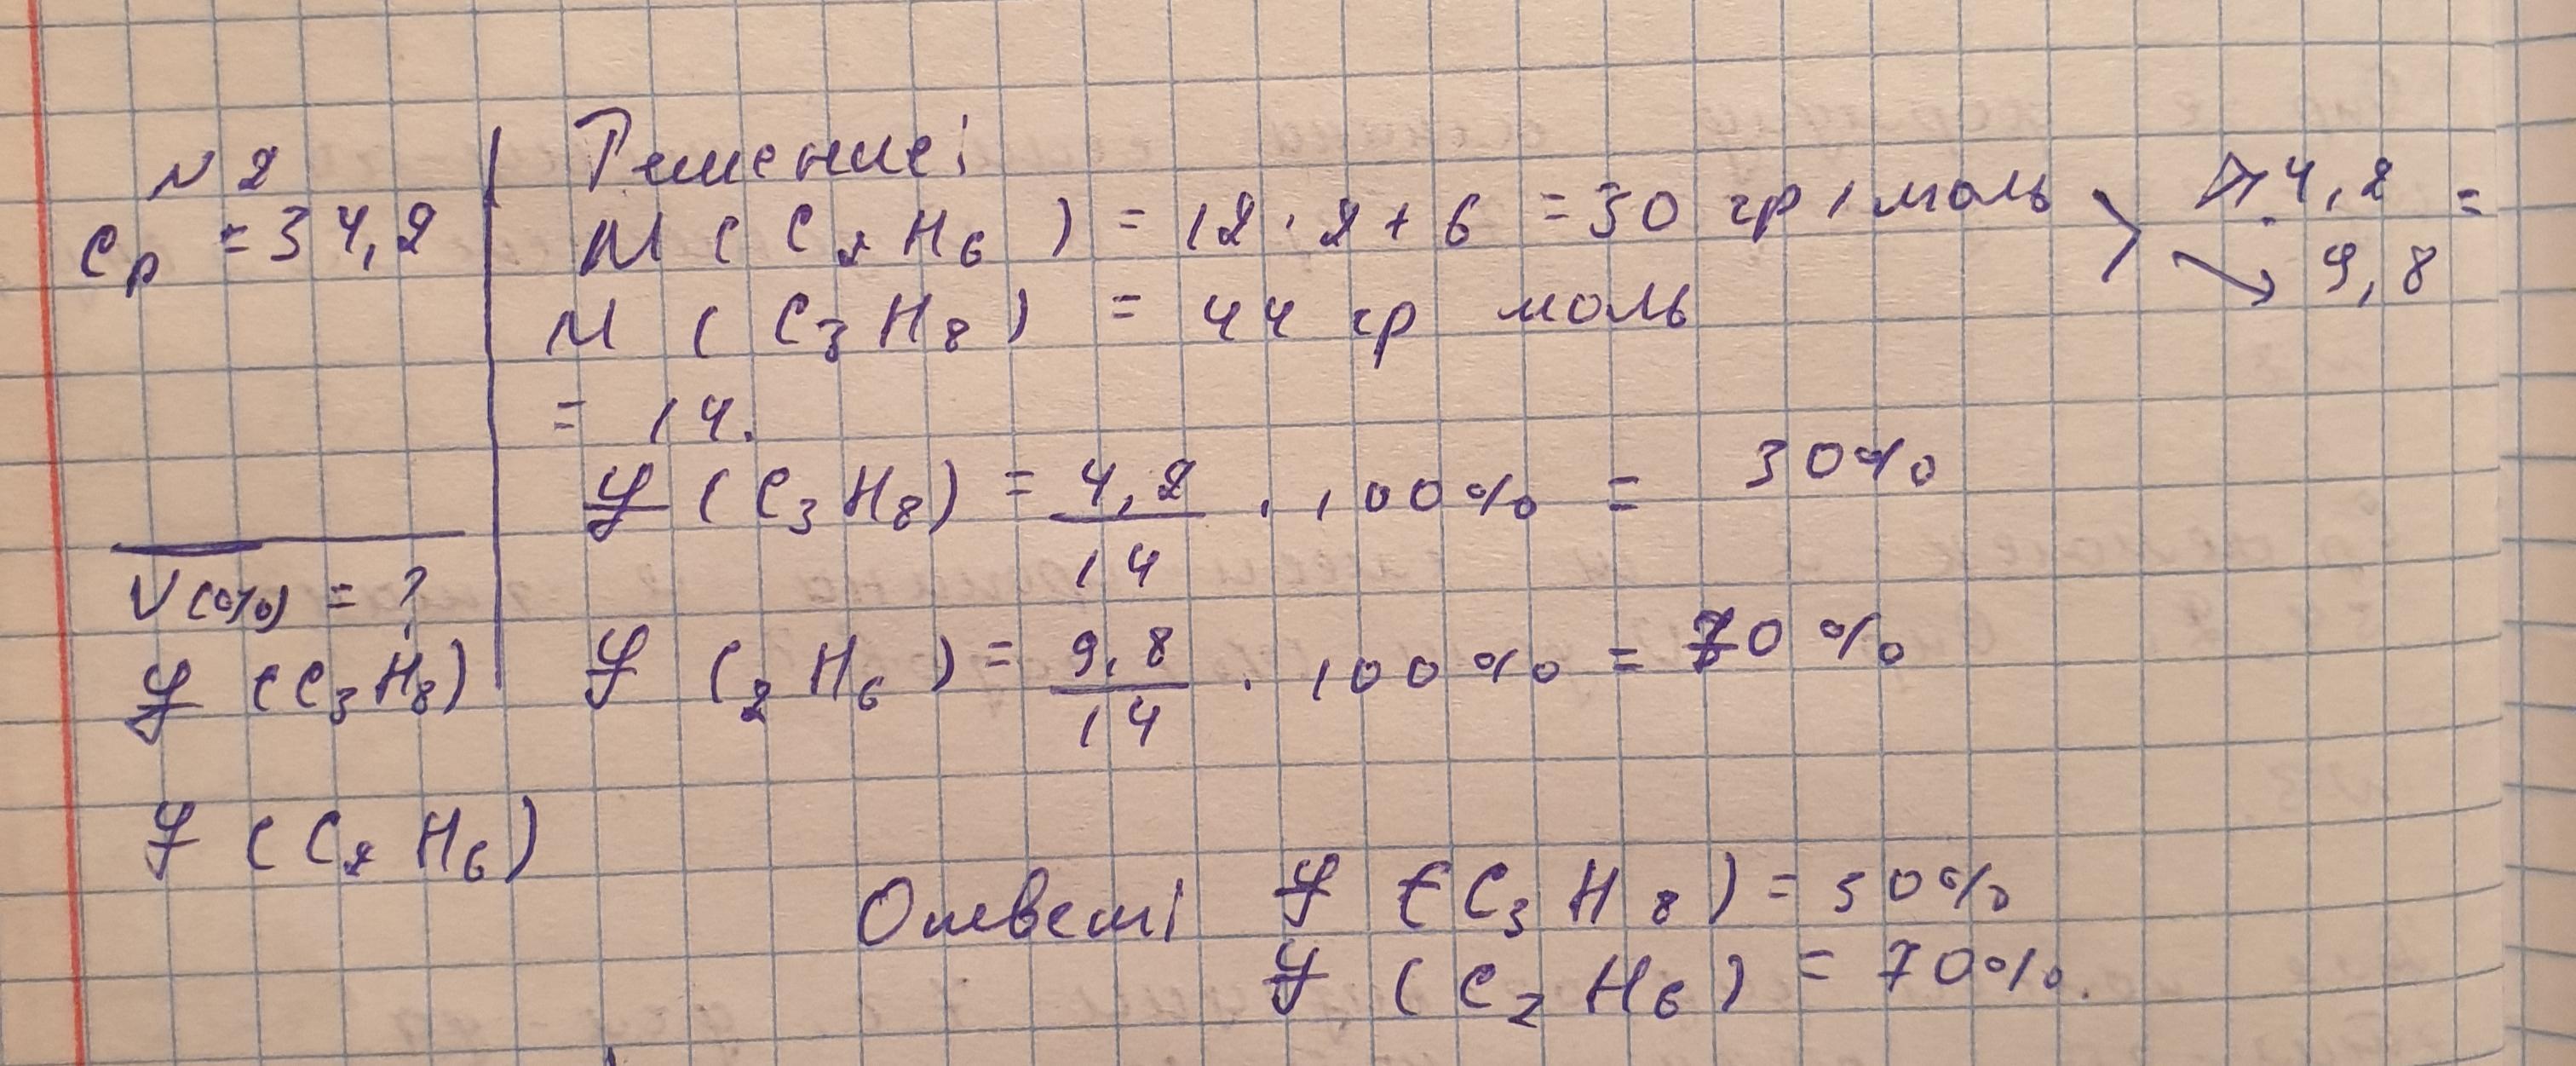 N 2
Cр = 34,2
V(%) = ?
φ (C₃H₈)
φ (C₂H₆)
Решение:
M (C₂H₆) = 12 · 2 + 6 = 30 гр / моль > 4,2 =
→ 9,8
M (C₃H₈) = 44 гр моль
= 14.
φ (C₃H₈) = 4,2/14 · 100% = 30%
φ (₂H₆) = 9,8/14 · 100% = 70%
Ответ: φ (C₃H₈) = 30%
φ (C₂H₆) = 70%.